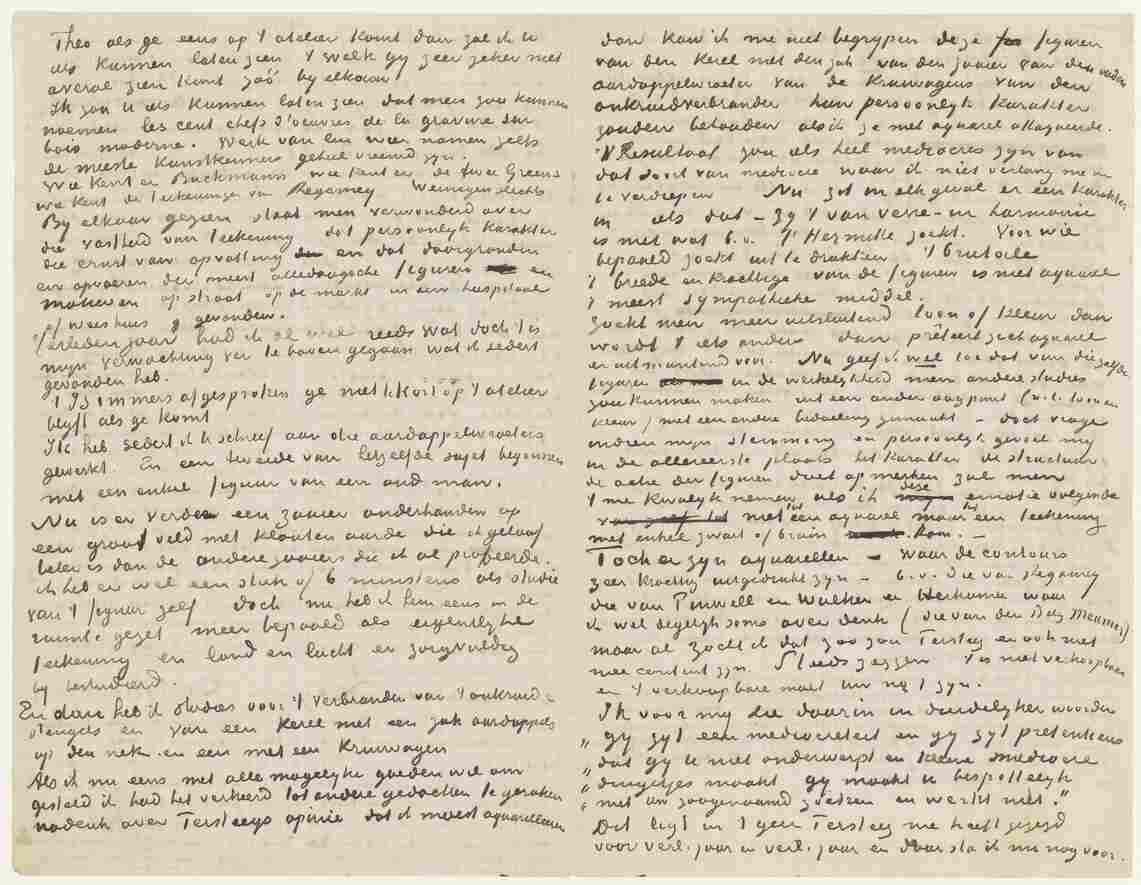 Theo als ge eens op 't atelier komt dan zal ik u
iets kunnen laten zien 't welk gij zeer zeker niet
overal zien kunt zóó bij elkaar
Ik zou u iets kunnen laten zien dat men zou kunnen
noemen les cent chefs d'oeuvres de la gravure sur
bois moderne. Werk van lui wier namen zelfs
de meeste kunstkenners geheel vreemd zijn.
Wie kent er Buckmann wie kent er de twee Greens
wie kent de teekeningen van Regamey Weinigen slechts
Bij elkaar gezien staat men verwonderd over
die vastheid van teekening dat persoonlijk karakter
die ernst van opvatting en dat doorgronden
en opvoeren der meest alledaagsche figuren en
motieven op straat op de markt in een hospitaal
of weeshuis gevonden.
Verleden jaar had ik al reeds wat doch 't is
mijn verwachting ver te boven gegaan wat ik sedert
gevonden heb.
't Is immers afgesproken ge niet te kort op 't atelier
blijft als ge komt
Ik heb sedert ik U schreef aan die aardappelrooiers
gewerkt. En een tweede van hetzelfde sujet begonnen
met een enkel figuur van een oud man.
Nu is er verder een zaaier onderhanden op
een groot veld met kluiten aarde die ik geloof
beter is dan de andere zaaiers die ik al probeerde.
ik heb er wel een stuk of 6 minstens als studie
van 't figuur zelf doch nu heb ik hem eens in de
ruimte gezet meer bepaald als eigentlijke
teekening en land en lucht er zorgvuldig
bij bestudeerd.
En dan heb ik studies voor 't verbranden van 't onkruid &
stengels en van een kerel met een zak aardappels
op den nek en een met een kruiwagen
Als ik nu eens met alle mogelijke goeden wil om
gesteld ik had het verkeerd tot andere gedachten te geraken
nadenk over Tersteegs opinie dat ik moest aquarelleeren
dan kan ik me niet begrijpen deze figuren
van den kerel met den zak van den zaaier van den ouden
aardappelrooier van de kruiwagens van den
onkruidverbrander hun persoonlijk karakter
zouden behouden als ik ze met aquarel attaqueerde.
't Resultaat zou iets heel mediocres zijn van
dat soort van mediocre waar ik niet verlang me in
te verdiepen Nu zit in elk geval er een karakter
in iets dat – zij 't van verre – in harmonie
is met wat b.v. L'Hermitte zoekt. Voor wie
bepaald zoekt uit te drukken 't brutale
't breede en krachtige van de figuren is niet aquarel
't meest sympathieke middel.
Zoekt men meer uitsluitend toon of kleur dan
wordt 't iets anders dan prêteert zich aquarel
er uitmuntend voor. Nu geef ik wel toe dat van diezelfde
figuren in de werkelijkheid men andere studies
zou kunnen maken uit een ander oogpunt (n.l. toon en
kleur) met een andere bedoeling gemaakt – doch vrage
indien mijn stemming en persoonlijk gevoel mij
in de allereerste plaats het karakter de structuur
de actie der figuren doet opmerken zal men
't me kwalijk nemen als ik deze emotie volgende
niet tot een aquarel maar tot een teekening
met enkel zwart of bruin kom. –
Toch er zijn aquarellen – waar de contours
zeer krachtig uitgedrukt zijn – b.v. die van Regamey
die van Pinwell en Walker en Herkomer waar
ik wel degelijk soms over denk (die van den Belg Meunier)
maar al zocht ik dat zoo zou Tersteeg er ook niet
mee content zijn. Steeds zeggen 't is niet verkoopbaar
en 't verkoopbare moet nr no 1 zijn.
Ik voor mij zie daarin in duidelijker woorden
„ gij zijt een mediocreteit en gij zijt pretentieus
„ dat gij u niet onderwerpt en kleine mediocre
„ dingetjes maakt gij maakt u bespottelijk
„ met uw zoogenaamd zoeken en werkt niet."
Dit ligt in 't geen Tersteeg me heeft gezegd
voor verl. jaar en verl. jaar en daar sta ik nu nog voor.